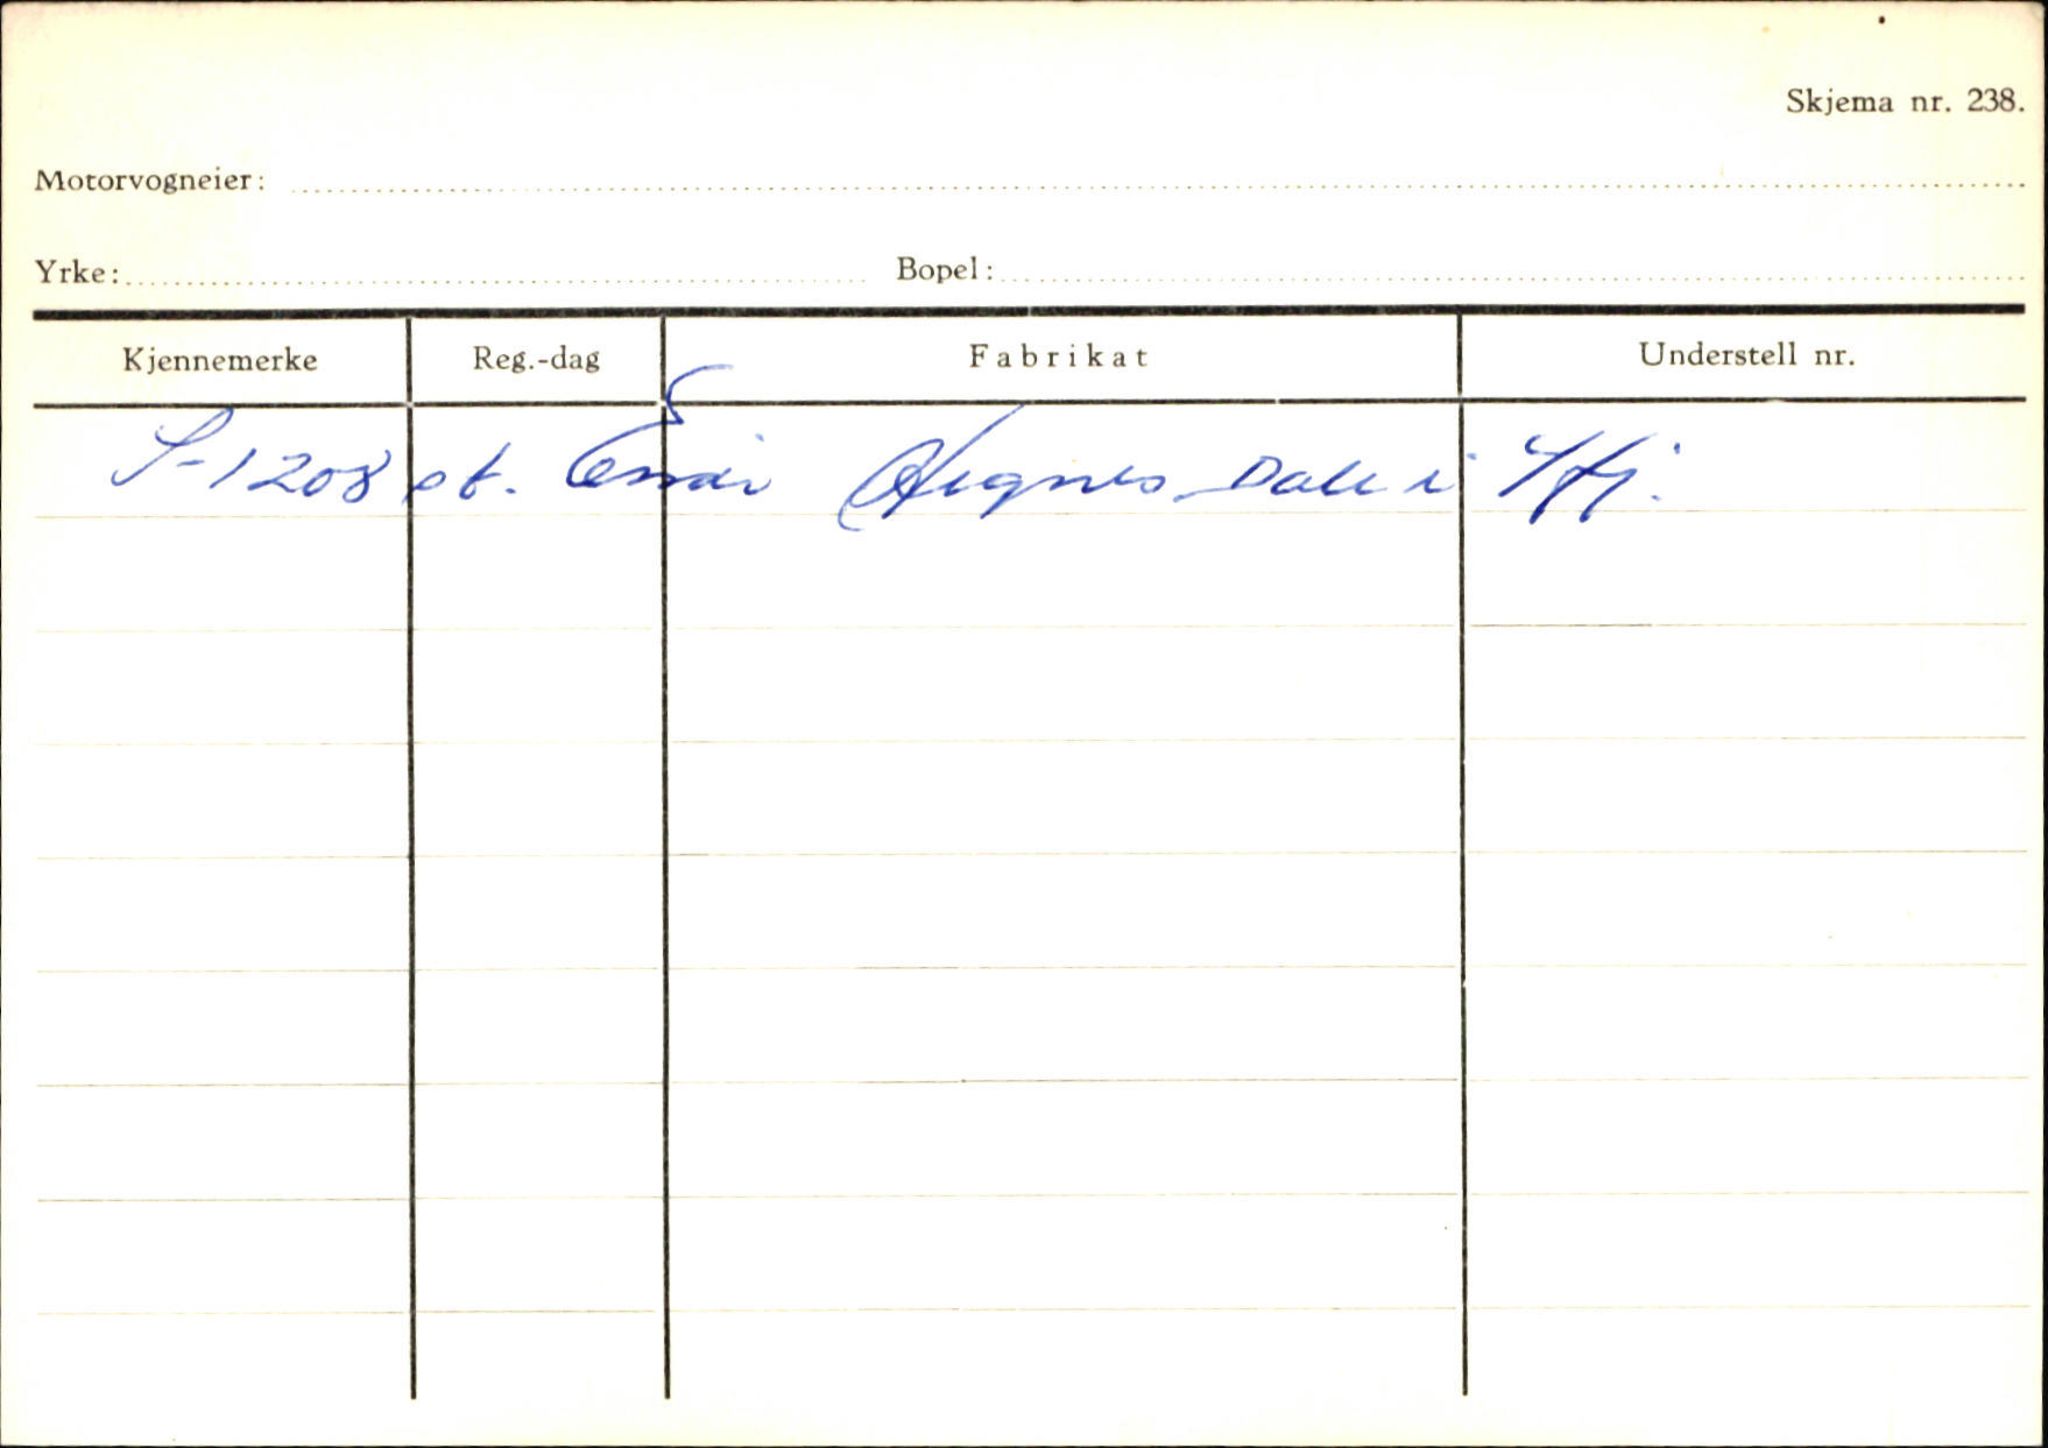 Skjema nr. 238.
Motorvogneier:
Yrke: Bopel:
Kjennemerke Reg.-dag Fabrikat Understell nr.
S-1208 st. Dale i